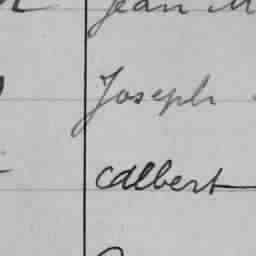 Jean M
Joseph
Albert